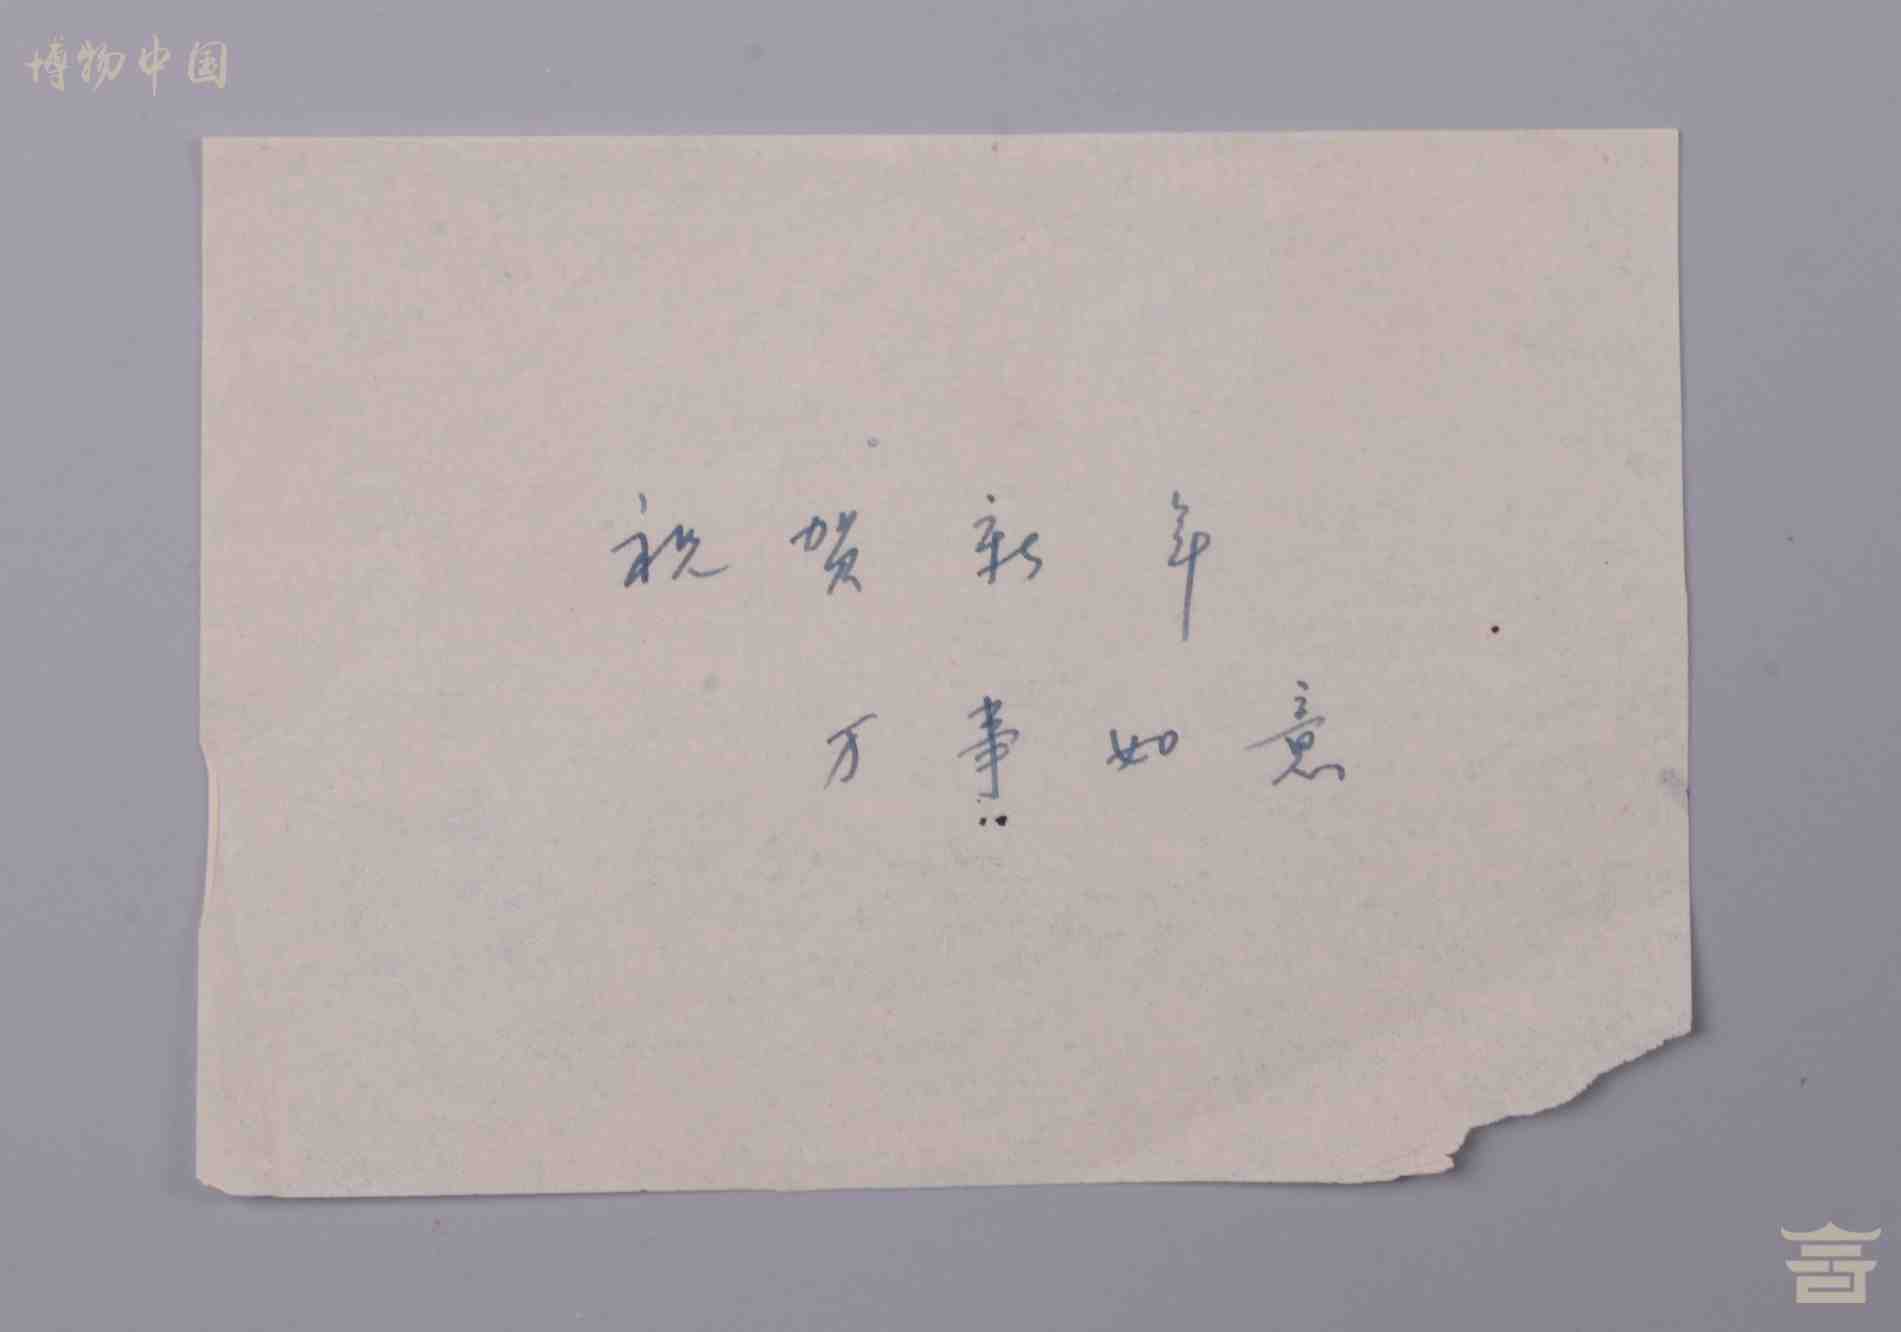 博物中国
祝贺新年
万事如意